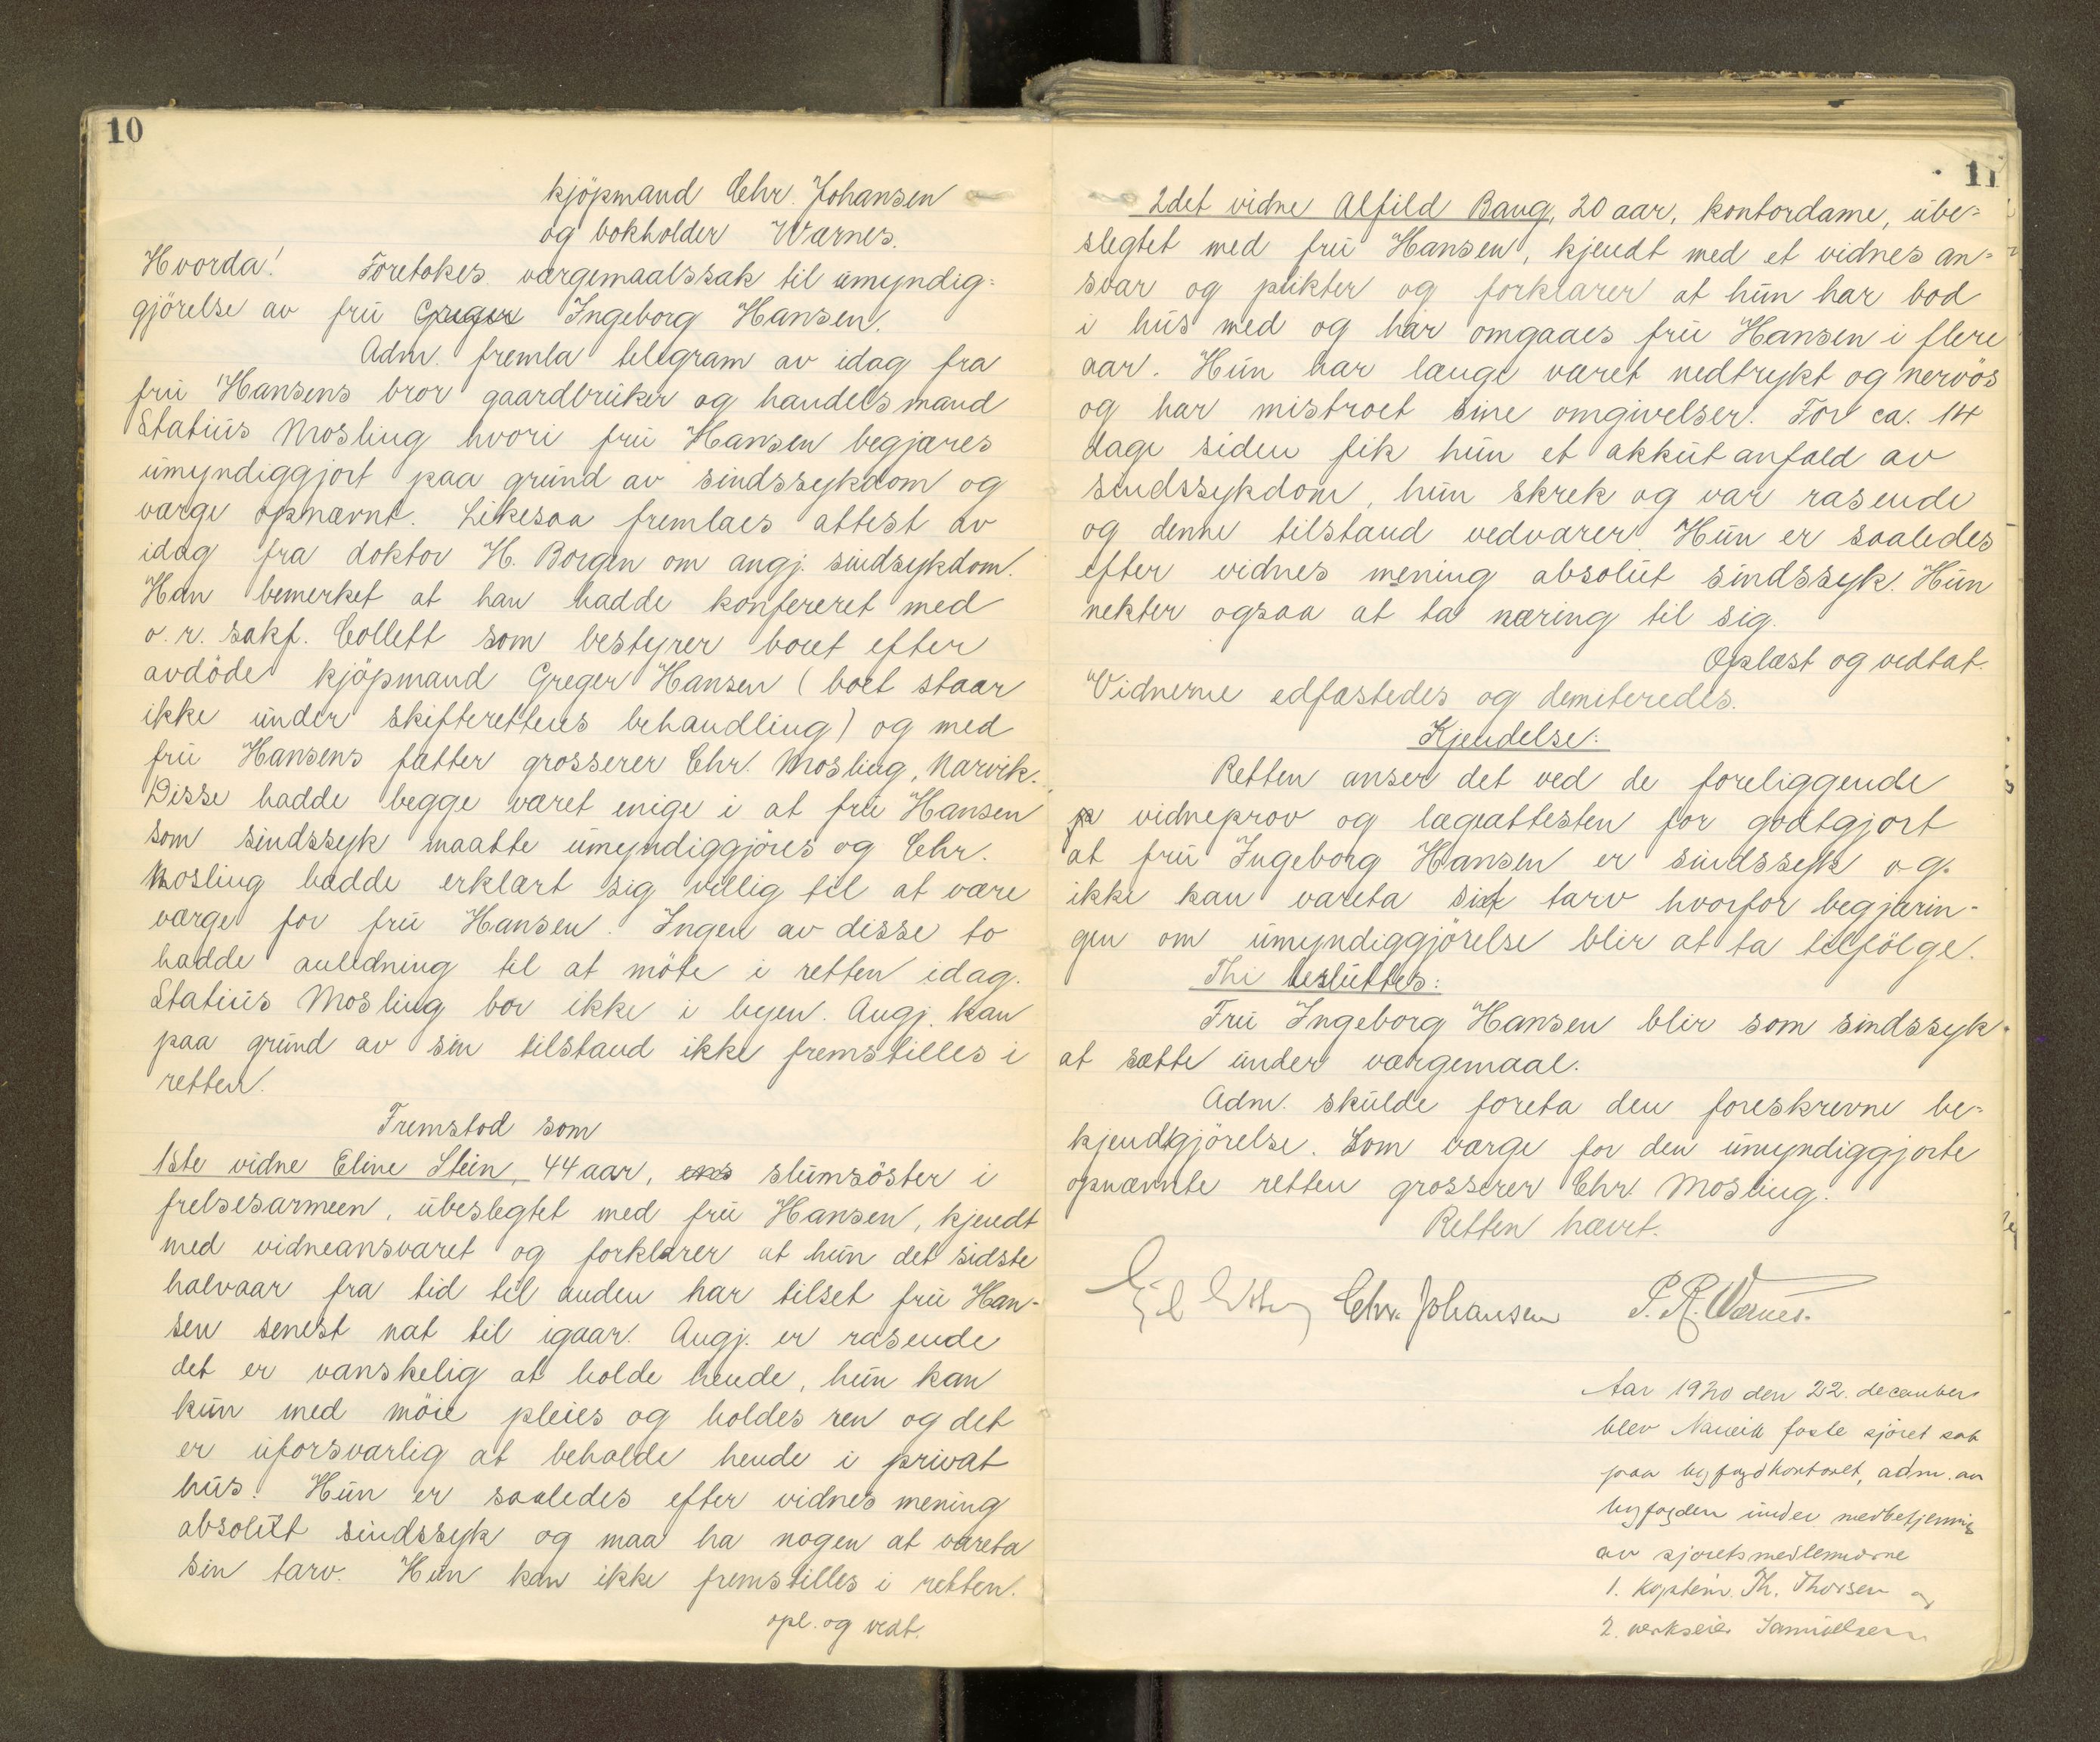 10
kjöpmand Chr. Johansen
og bokholder Wærnes.
Hvorda! Foretokes værgemaalssak til umyndig-
gjörelse av fru Greger Ingeborg Hansen.
Adm. fremla telegram av idag fra
fru Hansens bror gaardbruker og handelsmand
Statius Mosling hvori fru Hansen begjæres
umyndiggjort paa grund av sindssykdom og
værge opnævnt. Likesaa fremlaes attest av
idag fra doktor H. Borgen om angj. sindsykdom.
Han bemerket at han hadde konfereret med
o.r. sakf. Collett som bestyrer boet efter
avdöde kjöpmand Greger Hansen (boet staar
ikke under skifterettens behandling) og med
fru Hansens fætter grosserer Chr. Mosling, Narvik.
Disse hadde begge været enige i at fru Hansen
som sindssyk maatte umyndiggjöres og Chr.
Mosling hadde erklært sig villig til at være
værge for fru Hansen. Ingen av disse to
hadde anledning til at möte i retten idag.
Statius Mosling bor ikke i byen. Angj. kan
paa grund av sin tilstand ikke fremstilles i
retten.
Fremstod som
1ste vidne Eline Stein, 44 aar, slumsöster i
frelsesarmeen, ubeslegtet med fru Hansen, kjendt
med vidneansvaret og forklarer at hun det sidste
halvaar fra tid til anden har tilset fru Han-
sen senest nat til igaar. Angj. er rasende
det er vanskelig at holde hende, hun kan
kun med möie pleies og holdes ren og det
er uforsvarlig at beholde hende i privat
hus. Hun er saaledes efter vidnes mening
absolut sindssyk og maa ha nogen at vareta
sin tarv. Hun kan ikke fremstilles i retten.
opl. og vedt.
11
2det vidne Alfild Baug, 20 aar, kontordame, ube-
slegtet med fru Hansen, kjendt med et vidnes an-
svar og plikter og forklarer at hun har bod
i hus med og har omgaaes fru Hansen i flere
aar. Hun har længe været nedtrykt og nervös
og har mistroet sine omgivelser. For ca. 14
dage siden fik hun et akkut anfald av
sindssykdom, hun skrek og var rasende
og denne tilstand vedvarer. Hun er saaledes
efter vidnes mening absolut sindssyk. Hun
nekter ogsaa at ta næring til sig.
Oplæst og vedtat.
Vidnerne edfæstedes og demiteredes.
Kjendelse:
Retten anser det ved de foreliggende
vidneprov og lægeattesten for godtgjort
at fru Ingeborg Hansen er sindssyk og
ikke kan vareta sit tarv hvorfor begjærin-
gen om umyndiggjörelse blir at ta tilfölge.
Thi besluttes:
Fru Ingeborg Hansen blir som sindssyk
at sætte under værgemaal.
Adm. skulde foreta den foreskrevne be-
kjendtgjörelse. Som værge for den umyndiggjorte
opnævnte retten grosserer Chr. Mosling.
Retten hævet.
Chr. Johansen P. R. Wærnes.
Aar 1920 den 22. december
blev Narvik faste sjöret sat
paa byfogdkontoret, adm. av
byfogden under medbetjening
av sjöretsmedlemmerne
1. kaptein Th. Thorsen og
2. verkseier Samuelsen